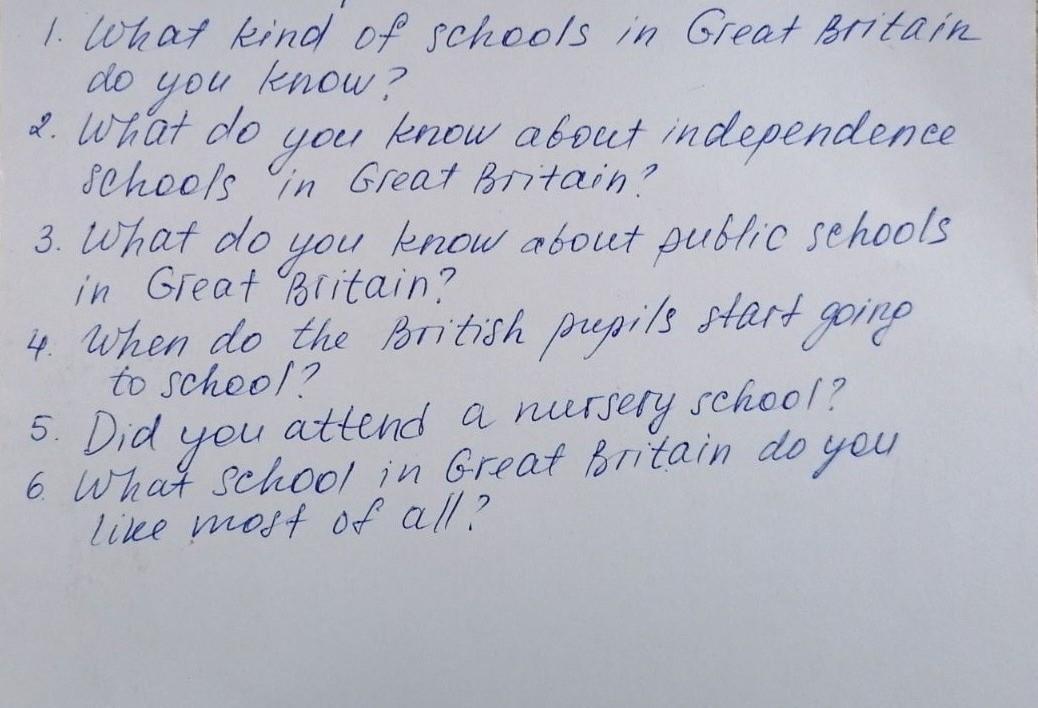 1. What kind of schools in Great Britain
do you know?
2. What do you know about independence
schools in Great Britain?
3. What do you know about public schools
in Great Britain?
4. When do the British pupils start going
to school?
5. Did you attend a nursery school?
6. What school in Great Britain do you
like most of all?